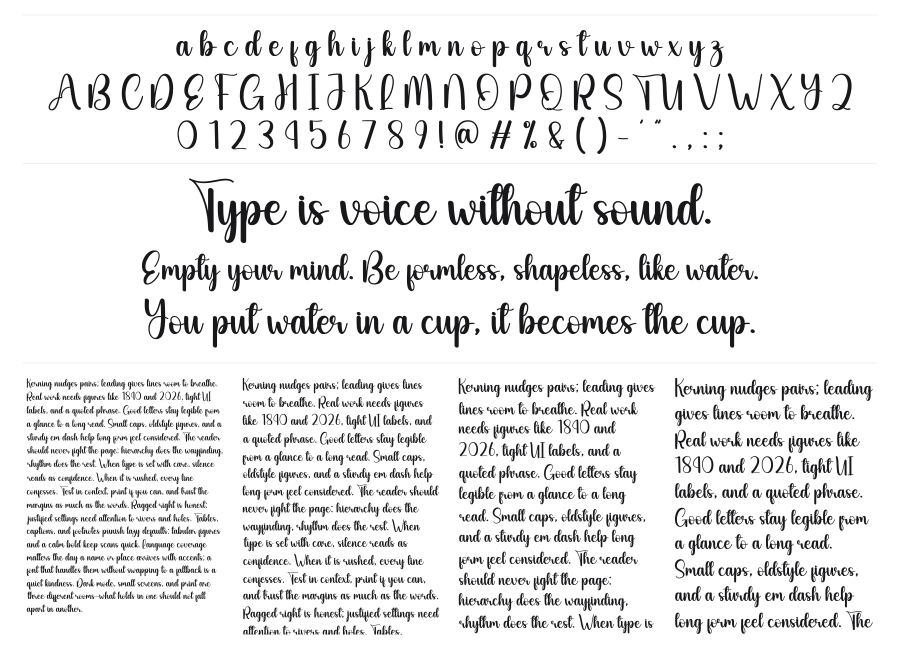 a b c d e f g h i j k l m n o p q r s t u v w x y z
A B C D E F G H I J K L M N O P Q R S T U V W X Y Z
0 1 2 3 4 5 6 7 8 9 ! @ # % & ( ) - ' " . , : ;
Type is voice without sound.
Empty your mind. Be formless, shapeless, like water.
You put water in a cup, it becomes the cup.
Kerning nudges pairs; leading gives lines room to breathe.
Real work needs figures like 1840 and 2026, tight UI
labels, and a quoted phrase. Good letters stay legible from
a glance to a long read. Small caps, oldstyle figures, and a
sturdy em dash help long form feel considered. The reader
should never fight the page: hierarchy does the wayfinding,
rhythm does the rest. When type is set with care, silence
reads as confidence. When it is rushed, every line
confesses. Test in context, print if you can, and trust the
margins as much as the words. Ragged right is honest;
justified settings need attention to rivers and holes. Tables,
captions, and footnotes punish lazy defaults: tabular figures
and a calm bold keep scans quick. Language coverage
matters the day a name or place arrives with accents; a
font that handles them without swapping to a fallback is a
quiet kindness. Dark mode, small screens, and print are
three different rooms—what holds in one should not fall
apart in another.
Kerning nudges pairs; leading gives lines
room to breathe. Real work needs figures
like 1840 and 2026, tight UI labels, and
a quoted phrase. Good letters stay legible
from a glance to a long read. Small caps,
oldstyle figures, and a sturdy em dash help
long form feel considered. The reader should
never fight the page: hierarchy does the
wayfinding, rhythm does the rest. When
type is set with care, silence reads as
confidence. When it is rushed, every line
confesses. Test in context, print if you can,
and trust the margins as much as the words.
Ragged right is honest; justified settings need
attention to rivers and holes. Tables,
Kerning nudges pairs; leading gives
lines room to breathe. Real work
needs figures like 1840 and
2026, tight UI labels, and a
quoted phrase. Good letters stay
legible from a glance to a long
read. Small caps, oldstyle figures,
and a sturdy em dash help long
form feel considered. The reader
should never fight the page:
hierarchy does the wayfinding,
rhythm does the rest. When type is
Kerning nudges pairs; leading
gives lines room to breathe.
Real work needs figures like
1840 and 2026, tight UI
labels, and a quoted phrase.
Good letters stay legible from
a glance to a long read.
Small caps, oldstyle figures,
and a sturdy em dash help
long form feel considered. The